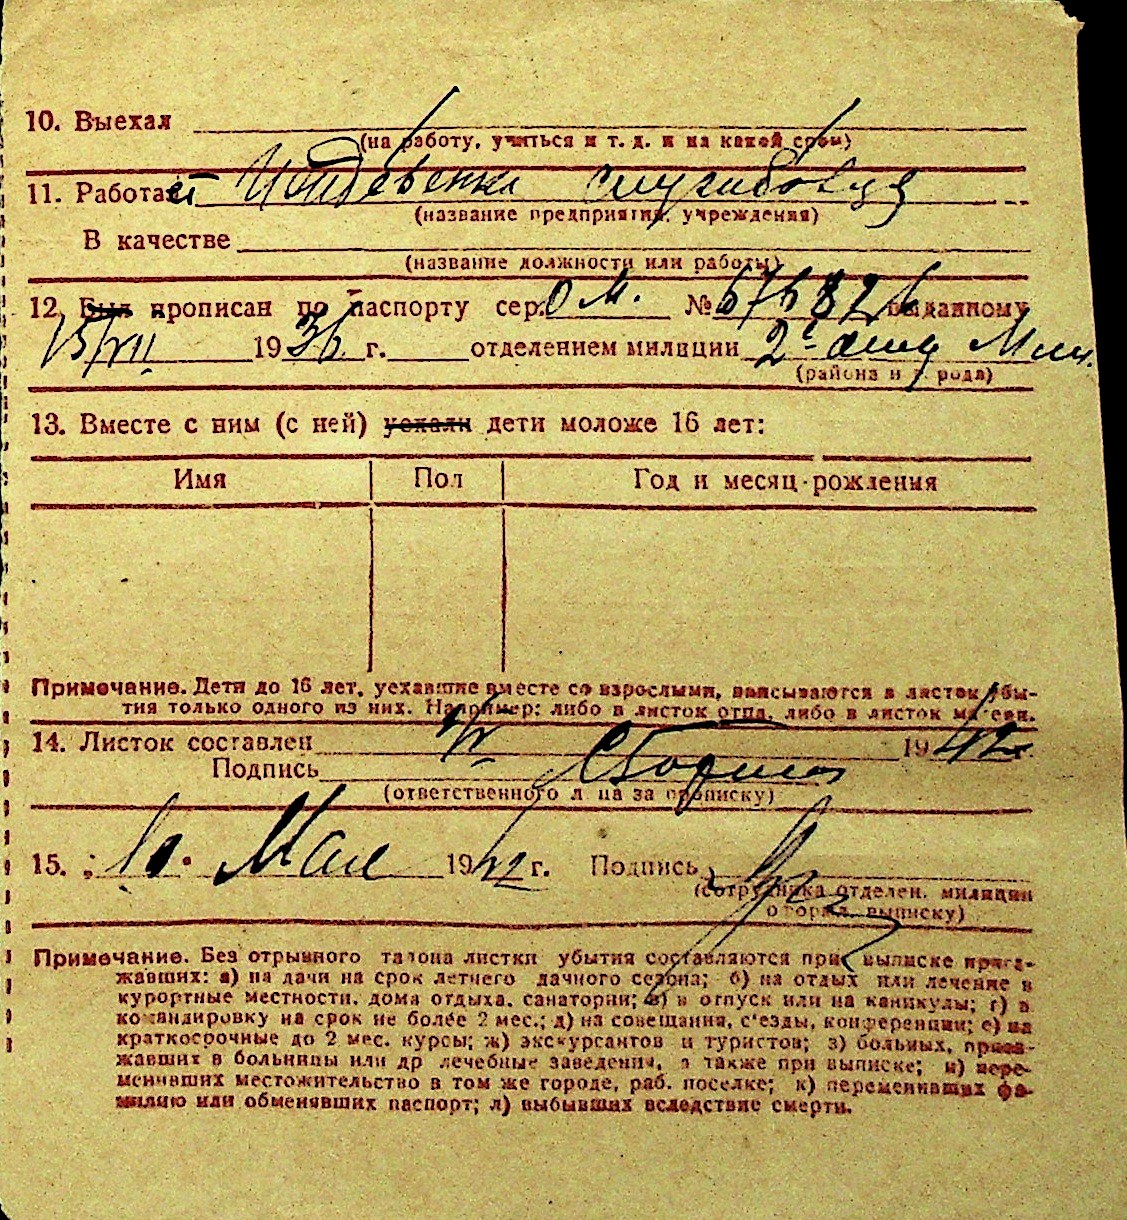 10. Выехал
(на работу, учиться и т. д. и на какой срок)
11. Работает Иждевенка
(название предприятия, учреждения)
В качестве
(название должности или работы)
12. Был прописан по паспорту сер. О М. № 676826 выданному
15/VII 1936 г. отделением милиции 2е
(района и города)
13. Вместе с ним (с ней) уехали дети моложе 16 лет:
Имя Пол Год и месяц рождения
Примечание. Дети до 16 лет, уехавшие вместе со взрослыми, вписываются в листок убы-
тия только одного из них. Например: либо в листок отца, либо в листок матери.
14. Листок составлен 1942
Подпись
(ответственного лица за прописку)
15. Мая 1942 г. Подпись
(сотрудника отделен. милиции
оформл. выписку)
Примечание. Без отрывного талона листки убытия составляются при выписке приез-
жавших: а) на дачи на срок летнего дачного сезона; б) на отдых или лечение в
курортные местности, дома отдыха, санатории; в) в отпуск или на каникулы; г) в
командировку на срок не более 2 мес.; д) на совещания, с'езды, конференции; е) на
краткосрочные до 2 мес. курсы; ж) экскурсантов и туристов; з) больных, приез-
жавших в больницы или др лечебные заведения, а также при выписке; и) пере-
менивших местожительство в том же городе, раб. поселке; к) переменивших фа-
милию или обменявших паспорт; л) выбывших вследствие смерти.